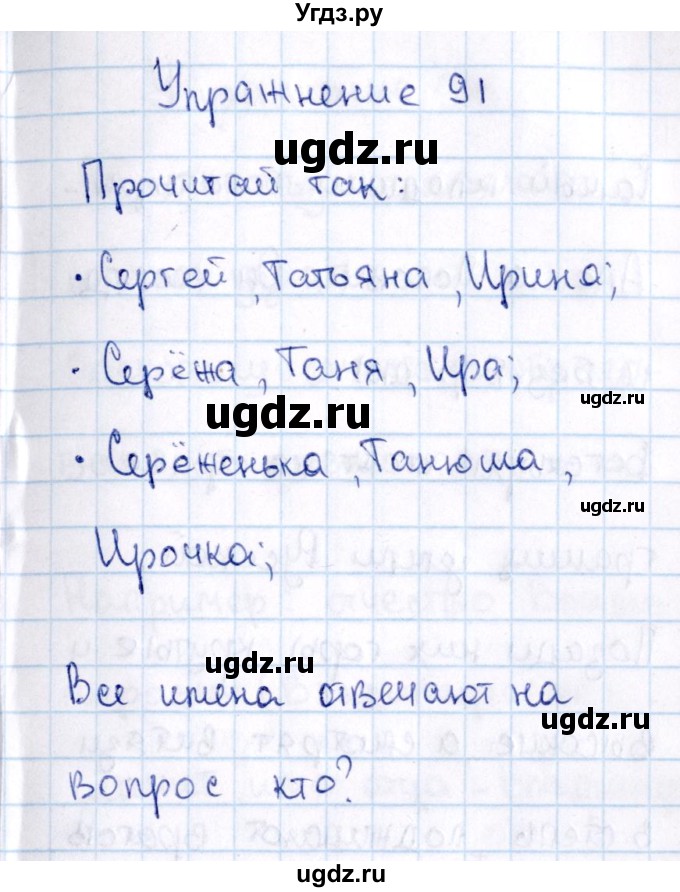 Угдз.ру
Упражнение 91
ugdz.ru
Прочитай так:
• Сергей, Татьяна, Ирина;
• Серёжа, Таня, Ира;
ugdz.ru
ugdz.ru
• Серёженька, Танюша,
ugdz.ru
Ирочка;
ugdz.ru
Все имена отвечают на
ugdz.ru
вопрос кто?
ugdz.ru